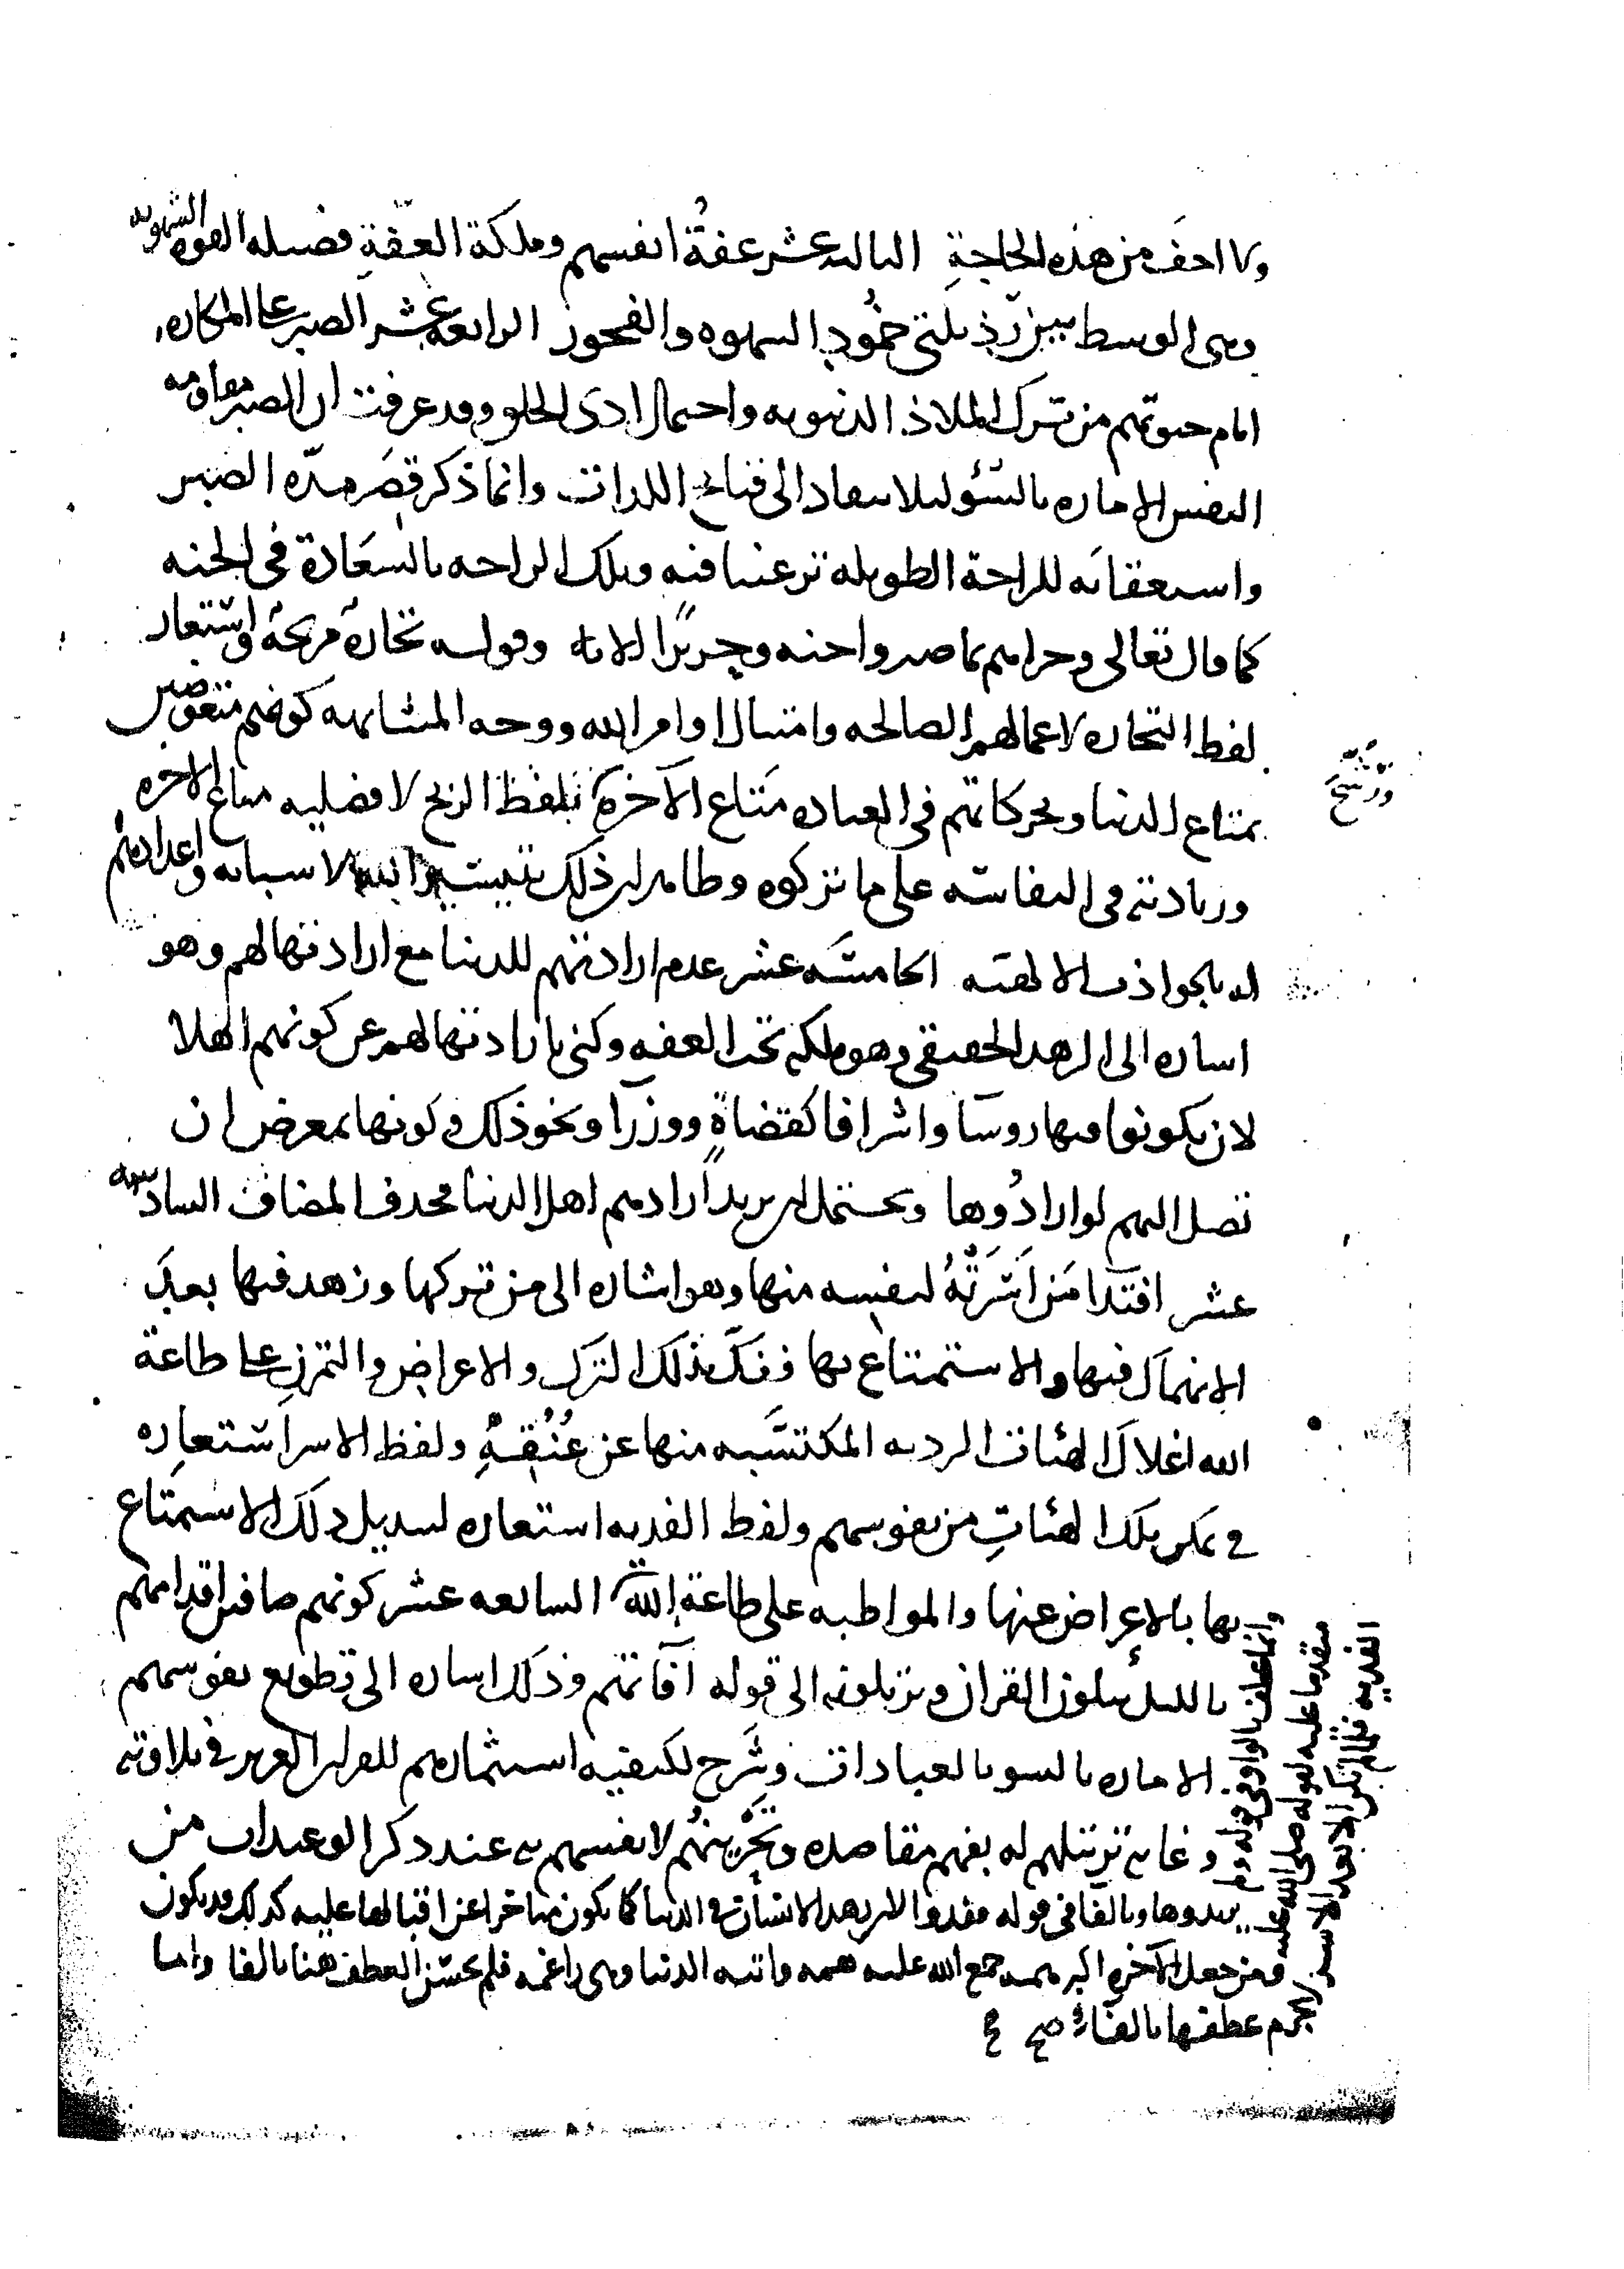 ولا اخف من هذه الحاجة الثالثه عشر عفة انفسهم وملكة العفة فضيله القوه الشهويه
وهى الوسط بين رذيلتى خمود الشهوه والفجور الرابعه عشر الصبر على المكاره
ايام حيوتهم من ترك الملاذ الدنيويه واحتمال اذى الخلق وقد عرفت ان الصبر مقاومه
النفس الاماره بالسوء لئلا ينقاد الى قبايح اللذات وانما ذكر قصر مدّه الصبر
واستعقابه للراحة الطويله ترغيبا فيه وتلك الراحه بالسعادة فى الجنه
كما قال تعالى وجزاهم بما صبروا جنه وحريرًا الايه وقوله تجارة مربحة واستعار
لفظ التجاره لاعمالهم الصالحه وامتثال اوامر الله ووجه المشابهه كونهم متعوضين
بمتاع الدنيا وبحركاتهم فى العباده متاع الآخرة بلفظ الربح لافضليه متاع الاخره
وزيادته فى النفاسه على ما تركوه وظاهر ان ذلك بتيسير الله لاسبابه واعدادهم
له بالجواذب الالهيه الخامسه عشر عدم ارادتهم للدنيا مع ارادتها لهم وهو
اشاره الى الزهد الحقيقى وهو ملكه تحت العفه وكنى بارادتها لهم عن كونهم اهلا
لان يكونوا فيها روسا واشرافا كقضاةٍ ووزرا ونحو ذلك وكونها بمعرض ان
تصل اليهم لو ارادُوها ويحتمل ان يريد ارادهم اهل الدنيا فحذف المضاف السادسه
عشر افتدا من اَسَرَتْهُ لنفسه منها وهو اشاره الى من تركها وزهد فيها بعد
الانهماك فيها والاستمتاع بها ففكّ بذلك الترك والاعراض والتمرن على طاعة
الله اغلال الهئات الرديه المكتسبه منها عن عُنُقِهِ ولفظ الاسر استعاره
فى تمكن تلك الهئاتِ من نفوسهم ولفظ الفديه استعاره لتبديل ذلك الاستمتاع
بها بالاعراض عنها والمواظبه على طاعة الله السابعه عشر كونهم صافين اقدامهم
بالليل يتلون القران ويرتلونه الى قوله آفاتهم وذلك اشاره الى تطويع نفوسهم
الاماره بالسو بالعبادات وشَرح لكيفيه استثمارهم للقران العزيز فى تلاوته
وغايه ترتيلهم له بفهم مقاصده وتَحْزِينهُم لانفسهم به عند ذكر الوعيدات من
ورشح
وانما عطف بالواو فى قوله ولم
يريدوها وبالفا فى قوله ففدوا لان زهد الانسان فى الدنيا كما يكون متاخرا عن اقبالها عليه كذلك قد يكون
متقدما عليه لقوله صلى الله عليه
ومن جعل الآخرة اكبر همه جمع الله عليه همه واتته الدنيا وهى راغمه فلم يحسن العطف هنا بالفا واما
الفديه فلما لم تكن الا بعد الاسر
لا جرم عطفها بالفاء صح